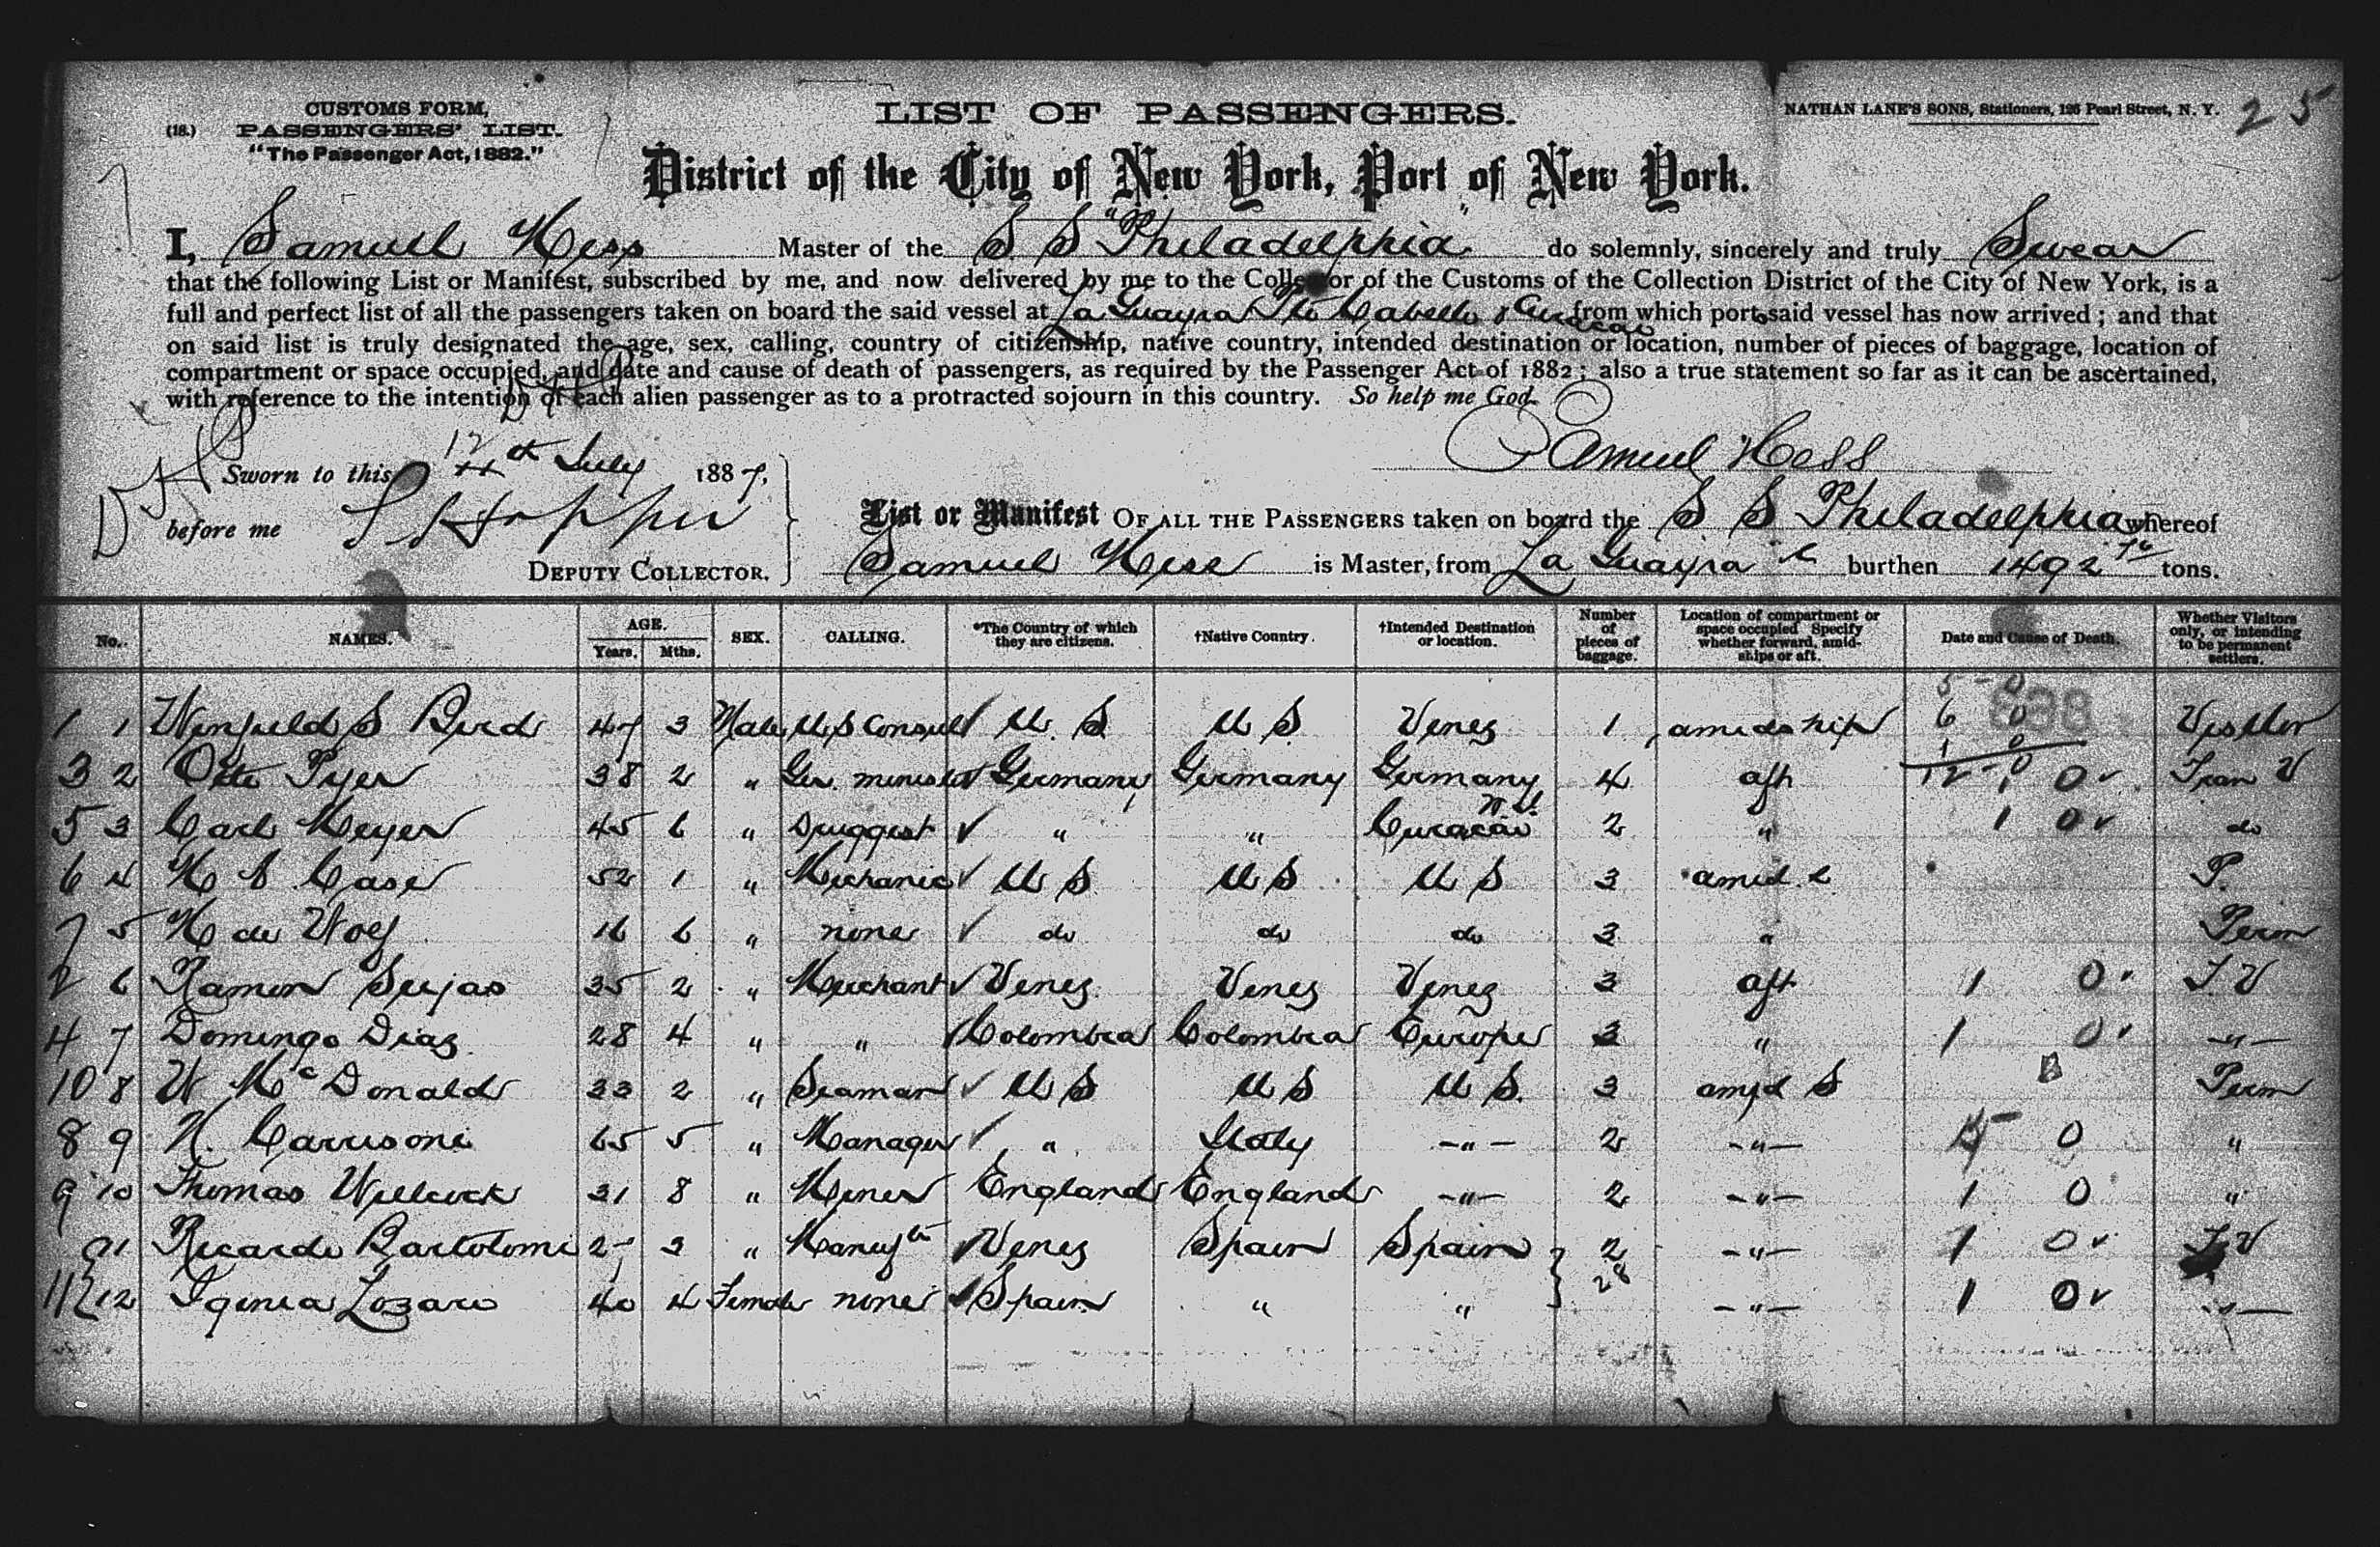 CUSTOMS FORM,
(18.) PASSENGERS' LIST.
"The Passenger Act, 1882."
LIST OF PASSENGERS.
NATHAN LANE'S SONS, Stationers, 126 Pearl Street, N. Y. 25
District of the City of New York, Port of New York.
I, Samuel Hess Master of the S S "Philadelphia" do solemnly, sincerely and truly Swear
that the following List or Manifest, subscribed by me, and now delivered by me to the Collector of the Customs of the Collection District of the City of New York, is a
full and perfect list of all the passengers taken on board the said vessel at La Guayra Pto Cabello & Curacao from which ports said vessel has now arrived; and that
on said list is truly designated the age, sex, calling, country of citizenship, native country, intended destination or location, number of pieces of baggage, location of
compartment or space occupied, and date and cause of death of passengers, as required by the Passenger Act of 1882; also a true statement so far as it can be ascertained,
with reference to the intention of each alien passenger as to a protracted sojourn in this country. So help me God.
Samuel Hess
Sworn to this 12th July 1887,
before me
DEPUTY COLLECTOR.
List or Manifest OF ALL THE PASSENGERS taken on board the S S Philadelphia whereof
Samuel Hess is Master, from La Guayra burthen 1492 tons.
No. NAMES. AGE. Years. Mths. SEX. CALLING. *The Country of which they are citizens. †Native Country. †Intended Destination or location. Number of pieces of baggage. Location of compartment or space occupied Specify whether forward, amidships or aft. Date and Cause of Death. Whether Visitors only, or intending to be permanent settlers.
1 1 Winfield S Bird 47 3 Male U S Consul U. S U S Venez 1 amidship Visitor
3 2 Otto 38 2 " Ger. minister Germany Germany Germany 4 aft 1 0 Tran V
5 3 Carl Meyer 45 6 " Druggist " " Curacao W. I. 2 " 1 0 do
6 4 H Case 52 1 " Mechanic U S U S U S 3 amid. P.
7 5 H de Wolf 16 6 " none do do do 3 " Perm
2 6 Ramon Seijas 35 2 " Merchant Venez. Venez Venez 3 aft 1 0 T. V
4 7 Domingo Diaz 28 4 " " Colombia Colombia Europe 3 " 1 0 -"-
10 8 W McDonald 33 2 " Seaman U S U S U S. 3 amid S Perm
8 9 N. Carrisone 65 5 " Manager " Italy -"- 2 -"- 0 "
9 10 Thomas Willcock 31 8 " Miner England England -"- 2 -"- 1 0 "
Ricardo Bartolomi 3 " Venez Spain Spain 2 -"- 1 0 T V
12 Iginia Lozaro 40 4 Female none Spain " " 28 -"- 1 0 -"-